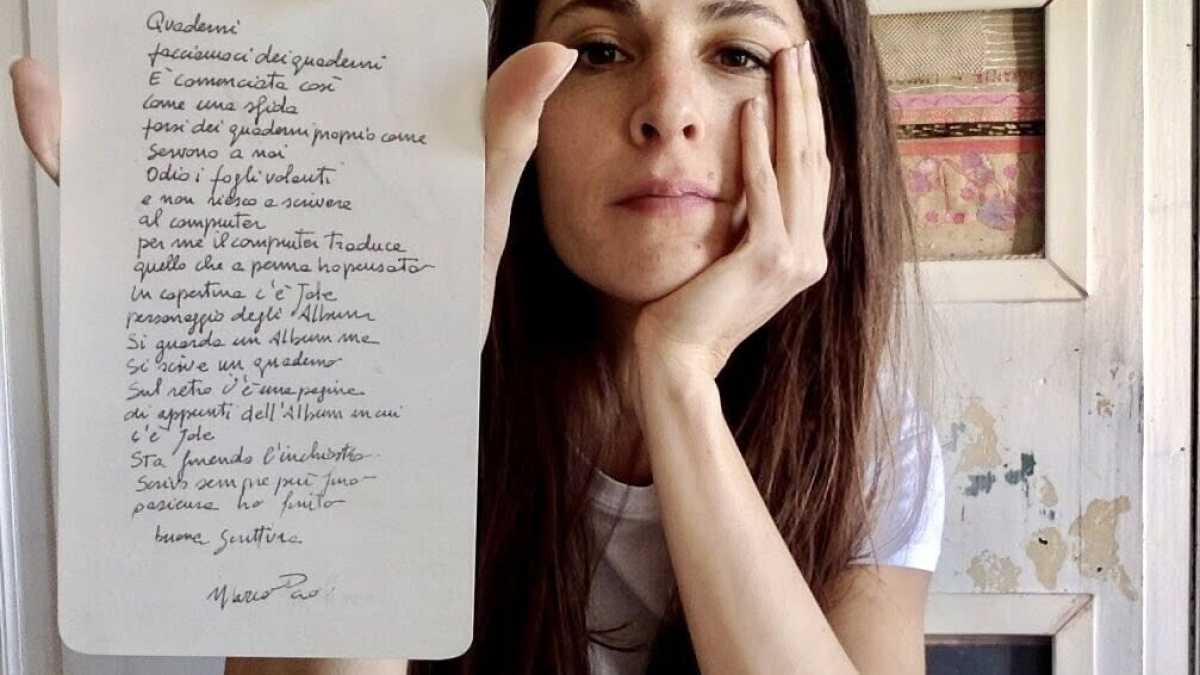 Quaderni
facciamoci dei quaderni
È cominciata così
come una sfida
farsi dei quaderni proprio come
servono a noi
Odio i fogli volanti
e non riesco a scrivere
al computer
per me il computer traduce
quello che a penna ho pensato
In copertina c'è Jole
personaggio degli Album
Si guarda un Album ma
si scrive un quaderno
Sul retro c'è una pagina
di appunti dell'Album in cui
c'è Jole
Sta finendo l'inchiostro
Scrivo sempre più fino
ho finito
buona scrittura
Marco Pao